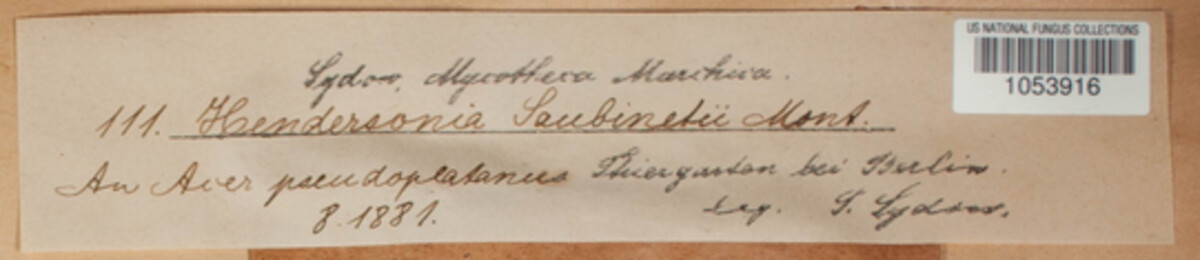 US NATIONAL FUNGUS COLLECTIONS
1053916
Sydow, Mycotheca Marchica.
111. Hendersonia Saubinetii Mont.
An Acer pseudoplatanus Thiergarten bei Berlin.
8.1881. Leg. P. Sydow.